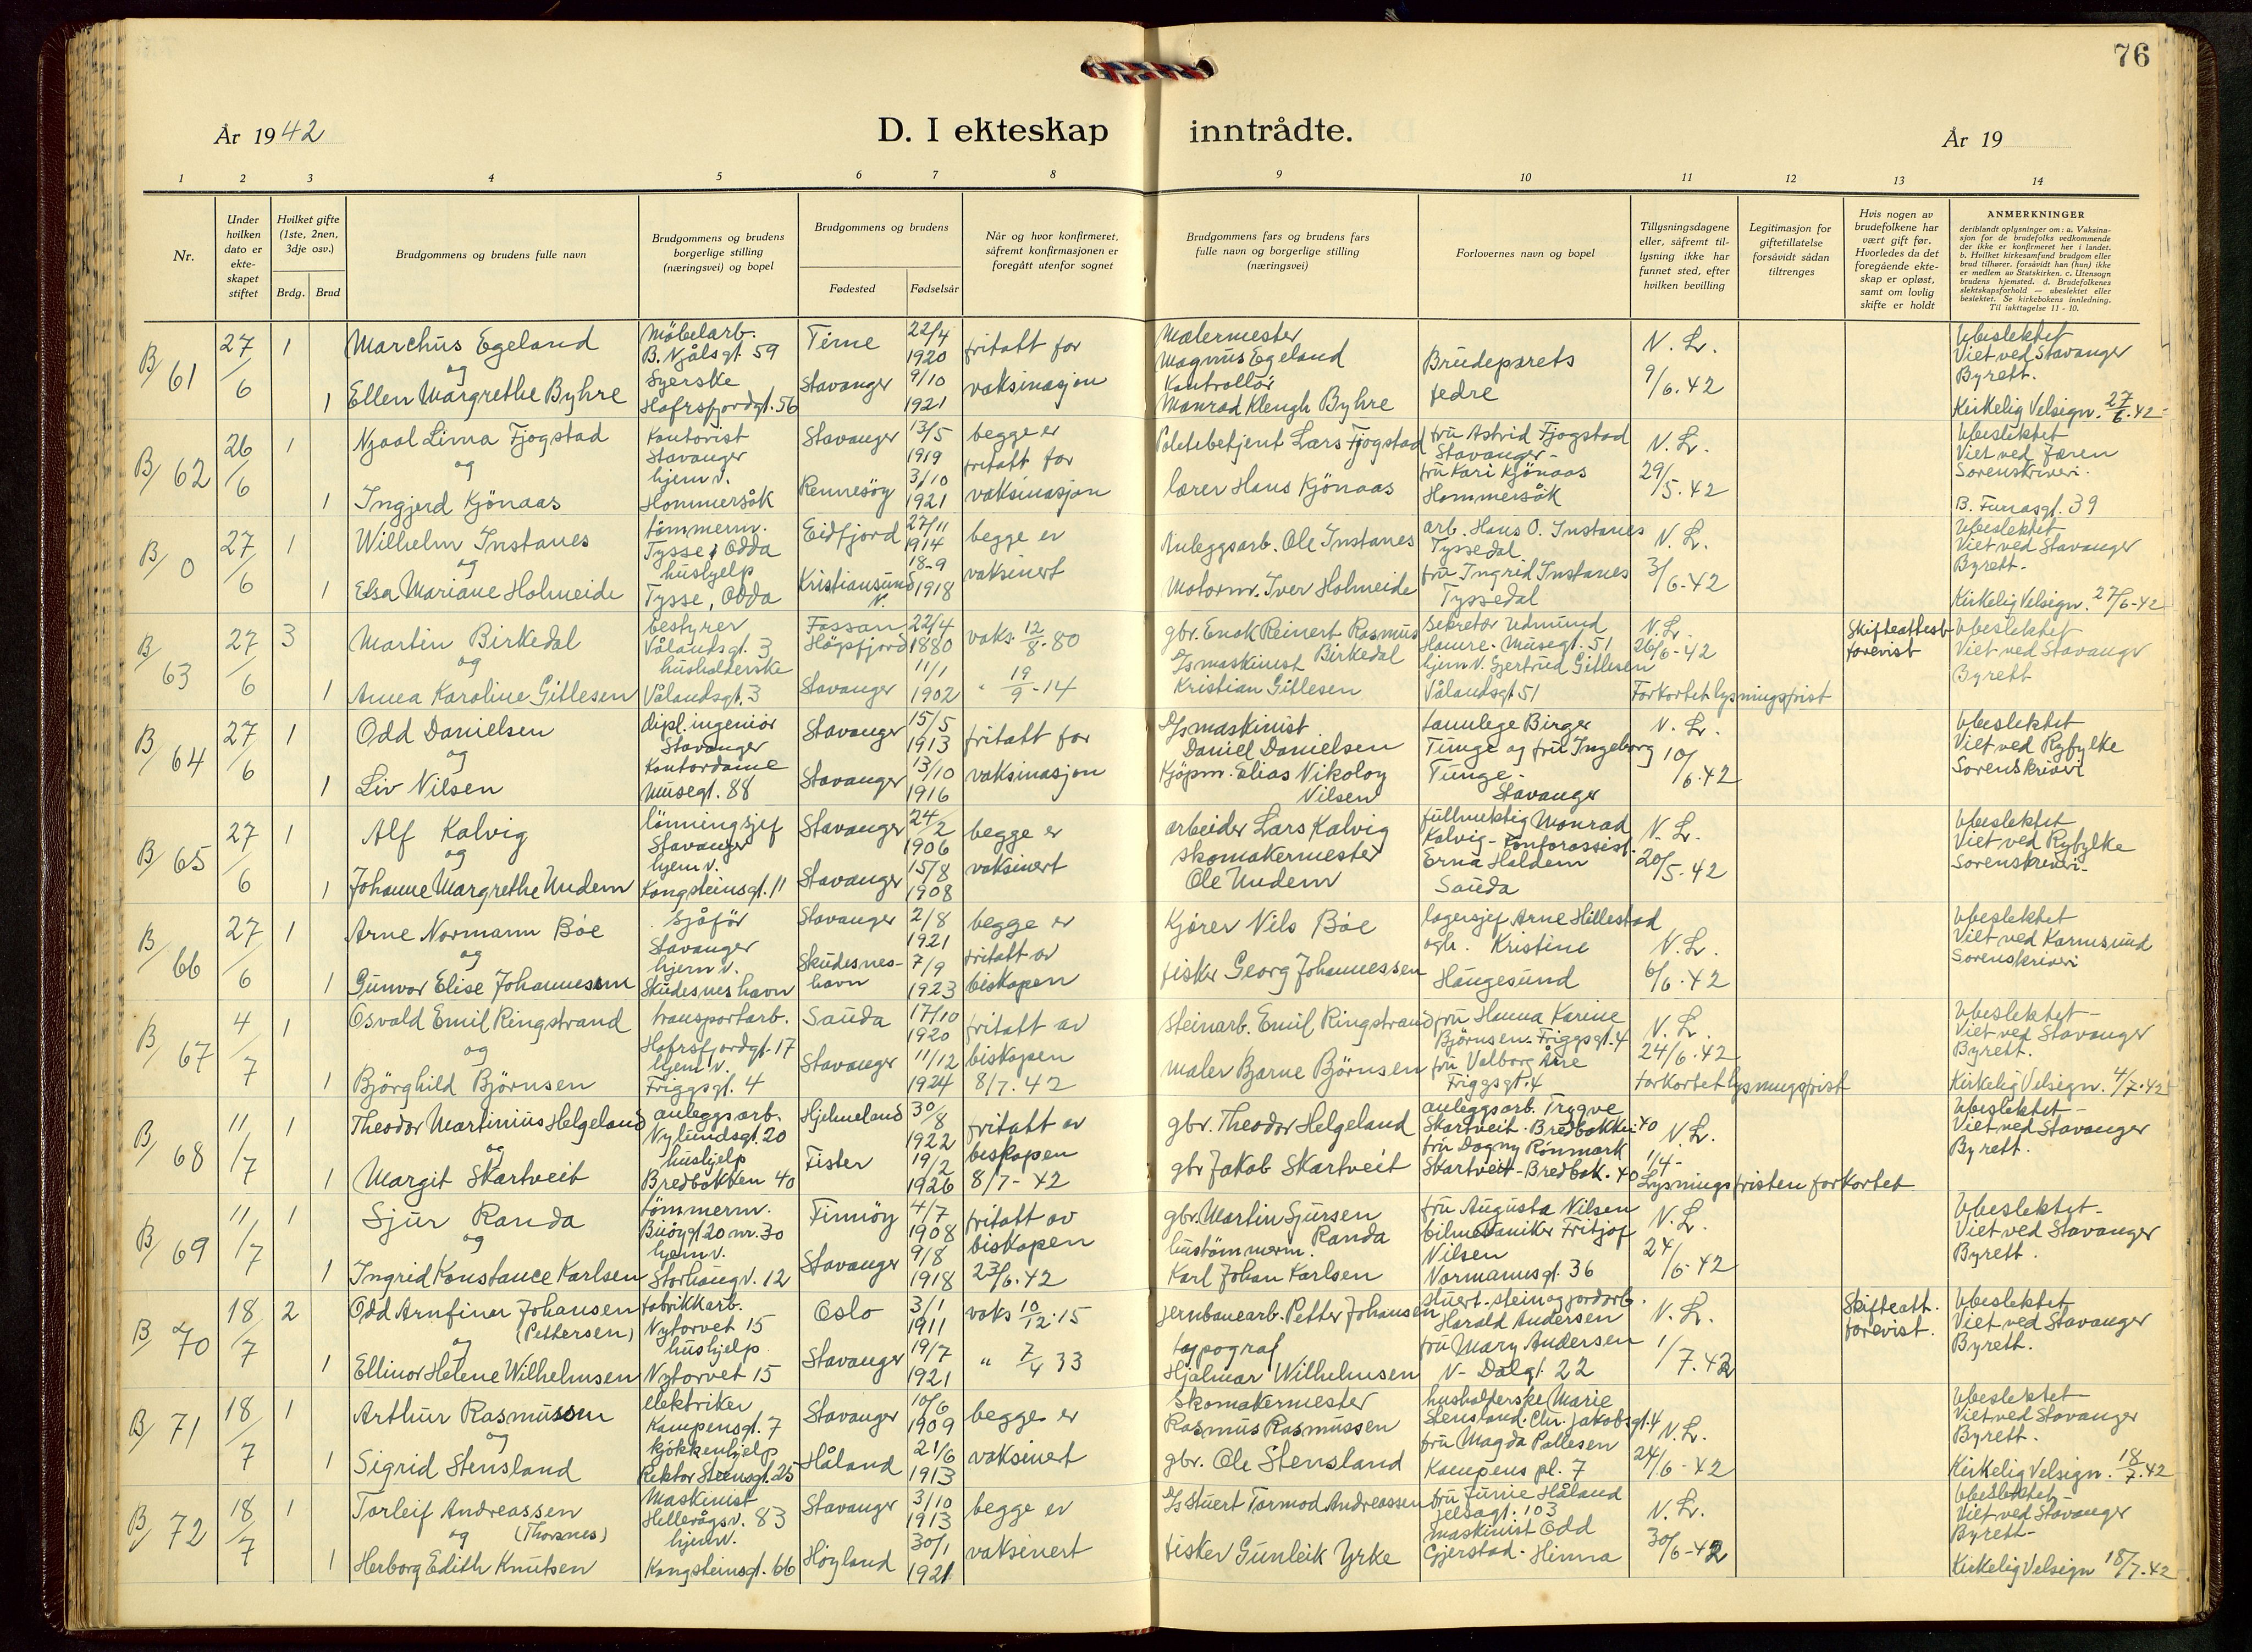 76
År 1942
D. I ekteskap inntrådte.
År 19
1 2 3 4 5 6 7 8 9 10 11 12 13 14
Nr.
Under hvilken dato er ekteskapet stiftet
Hvilket gifte (1ste, 2nen, 3dje osv.)
Brdg. Brud
Brudgommens og brudens fulle navn
Brudgommens og brudens borgerlige stilling (næringsvei) og bopel
Brudgommens og brudens
Fødested
Fødselsår
Når og hvor konfirmeret, såfremt konfirmasjonen er foregått utenfor sognet
Brudgommens fars og brudens fars fulle navn og borgerlige stilling (næringsvei)
Forlovernes navn og bopel
Tillysningsdagene eller, såfremt tillysning ikke har funnet sted, efter hvilken bevilling
Legitimasjon for giftetillatelse forsåvidt sådan tiltrenges
Hvis nogen av brudefolkene har vært gift før. Hvorledes da det foregående ekteskap er opløst, samt om lovlig skifte er holdt
ANMERKNINGER
deriblandt oplysninger om: a. Vaksinasjon for de brudefolks vedkommende der ikke er konfirmeret her i landet. b. Hvilket kirkesamfund brudgom eller brud tilhører, forsåvidt han (hun) ikke er medlem av Statskirken. c. Utensogn brudens hjemsted. d. Brudefolkenes slektskapsforhold — ubeslektet eller beslektet. Se kirkebokens innledning. Til iakttagelse 11 - 10.
B/61 27/6 1 1
Marchus Egeland
og
Ellen Margrethe Byhre
Möbelarb.
B. Njålsgt. 59
Syerske
Hafrsfjordgt. 56
Time 22/4 1920
Stavanger 9/10 1921
fritatt for
vaksinasjon
Malermester
Magnus Egeland
Kontrollör
Monrad Klengh Byhre
Brudeparets
fedre
N. L.
9/6.42
Ubeslektet
Viet ved Stavanger
Byrett.
Kirkelig Velsign. 27/6.42
B/62 26/6 1 1
Njaal Lima Fjogstad
og
Ingjerd Kjönaas
Kontorist
Stavanger
hjemv.
Hommersåk
Stavanger 13/5 1919
Rennesöy 3/10 1921
begge er
fritatt for
vaksinasjon
Politibetjent Lars Fjogstad
lærer Hans Kjönaas
fru Astrid Fjogstad
Stavanger -
fru Kari Kjönaas
Hommersåk
N. L.
29/5.42
Ubeslektet
Viet ved Jæren
Sorenskriveri.
B. Furrasgt. 39
B/0 27/6 1 1
Wilhelm Instanes
og
Elsa Mariane Holmeide
tömmerm.
Tysse, Odda
hushjelp
Tysse, Odda
Eidfjord 27/11 1914
Kristiansund N. 18-9 1918
begge er
vaksinert
Anleggsarb. Ole Instanes
Motorm. Iver Holmeide
arb. Hans O. Instanes
Tyssedal
fru Ingrid Instanes
Tyssedal
N. L.
3/6-42
Ubeslektet
Viet ved Stavanger
Byrett.
Kirkelig Velsign. 27/6-42
B/63 27/6 3 1
Martin Birkedal
og
Anna Karoline Gitlesen
bestyrer
Vålandsgt. 3
husholderske
Vålandsgt. 3
Fossan Högsfjord 22/4 1880
Stavanger 11/1 1902
vaks. 12/8.80
" 19/9-14
gbr. Enok Reinert Rasmus
Birkedal
D/s maskinist
Kristian Gitlesen
Sekretær Edmund
Hamre. Musegt. 51
hjemv. Gjertrud Gitlesen
Vålandsgt 51
N. L.
26/6-42
Forkortet lysningsfrist
Skifteattest
forevist
Ubeslektet
Viet ved Stavanger
Byrett
B/64 27/6 1 1
Odd Danielsen
og
Liv Nilsen
dipl. ingeniör
Stavanger
Kontordame
Musegt. 88
Stavanger 15/5 1913
Stavanger 13/10 1916
fritatt for
vaksinasjon
D/s maskinist
Daniel Danielsen
Kjöpm. Elias Nikolay
Nilsen
tannlege Birger
Tunge og fru Ingeborg
Tunge -
Stavanger
N. L.
10/6.42
Ubeslektet
Viet ved Ryfylke
Sorenskriveri
B/65 27/6 1 1
Alf Kalvig
og
Johanne Margrethe Undem
lönningsjef
Stavanger
hjemv.
Kongsteinsgt. 11
Stavanger 24/2 1906
Stavanger 15/8 1908
begge er
vaksinert
arbeider Lars Kalvig
Skomakermester
Ole Undem
fullmektig Monrad
Kalvig - Kontorassist.
Erna Haldem
Sauda
N. L.
20/5.42
Ubeslektet
Viet ved Ryfylke
Sorenskriveri.
B/66 27/6 1 1
Arne Normann Böe
og
Gunvor Elise Johannessen
Sjåför
Stavanger
hjemv.
Skudesneshavn
Stavanger 2/8 1921
Skudesneshavn 7/9 1923
begge er
fritatt av
biskopen
Kjörer Nils Böe
fisker Georg Johannessen
lagersjef Arne Hillestad
og h. Kristine
Haugesund
N. L.
6/6.42
Ubeslektet
Viet ved Karmsund
Sorenskriveri
B/67 4/7 1 1
Osvald Emil Ringstrand
og
Björghild Björnsen
transportarb.
Hafrsfjordgt. 17
hjemv.
Friggsgt. 4
Sauda 17/10 1920
Stavanger 11/12 1924
fritatt av
biskopen
8/7.42
Steinarb. Emil Ringstrand
maler Bjarne Björnsen
fru Hanna Karine
Björnsen. Friggsgt. 4
fru Valborg Åre
Friggsgt. 4
N. L.
24/6.42
Forkortet lysningsfrist
Ubeslektet -
Viet ved Stavanger
Byrett.
Kirkelig Velsign. 4/7.42
B/68 11/7 1 1
Theodor Martinius Helgeland
og
Margit Skartveit
anleggsarb.
Nylundsgt. 20
hushjelp
Bredbakken 40
Hjelmeland 30/8 1922
Fister 19/2 1926
fritatt av
biskopen
8/7- 42
gbr. Theodor Helgeland
gbr Jakob Skartveit
anleggsarb. Trygve
Skartveit. Bredbakken 40
fru Dagny Rönmark
Skartveit - Bredbak. 40
N. L.
1/4-
Lysningsfristen forkortet
Ubeslektet -
Viet ved Stavanger
Byrett.
B/69 11/7 1 1
Sjur Randa
og
Ingrid Konstance Karlsen
tömmerm.
Buöygt 20 nr. 30
hjemv.
Storhaugv. 12
Finnöy 4/7 1908
Stavanger 9/8 1918
fritatt av
biskopen
23/6.42
gbr. Martin Sjursen
Randa
hustömmerm.
Karl Johan Karlsen
fru Augusta Nilsen
bilmekaniker Fritjof
Nilsen
Normannsgt. 36
N. L.
24/6-42
Ubeslektet -
Viet ved Stavanger
Byrett.
B/70 18/7 2 1
Odd Arnfinn Johansen
(Pettersen)
og
Ellinor Helene Wilhelmsen
fabrikkarb.
Nytorvet 15
hushjelp
Nytorvet 15
Oslo 3/1 1911
Stavanger 19/7 1921
vaks 10/12.15
" 7/4 33
jernbanearb. Petter Johansen
typograf
Hjalmar Wilhelmsen
stuert. stein og jordarb.
Harald Andersen
fru Mary Andersen
N- Dalgt. 22
N. L.
1/7.42
Skifteatt.
forevist.
Ubeslektet
Viet ved Stavanger
Byrett.
B/71 18/7 1 1
Arthur Rasmussen
og
Sigrid Stensland
elektriker
Kampensgt. 7
kjökkenhjelp
Rektor Steensgt. 25
Stavanger 10/6 1909
Håland 21/6 1913
begge er
vaksinert
Skomakermester
Rasmus Rasmussen
gbr. Ole Stensland
husholderske Marie
Stensland. Chr. Jakobsgt. 4
fru Magda Pallesen
Kampens pl. 7
N. L.
24/6-42
Ubeslektet
Viet ved Stavanger
Byrett.
Kirkelig Velsign. 18/7.42
B/72 18/7 1 1
Torleif Andreassen
og (Thorsnes)
Herborg Edith Knutsen
Maskinist
Hellevågsv. 83
hjemv.
Kongsteinsgt. 66
Stavanger 3/10 1913
Höyland 30/1 1921
begge er
vaksinert
D/s Stuert Tormod Andreassen
fisker Gunleik Yrke
fru Junie Håland
Jelsagt. 103
maskinist Odd
Gjerstad. Hinna
N. L.
30/6-42
Ubeslektet
Viet ved Stavanger
Byrett-
Kirkelig Velsign 18/7.42